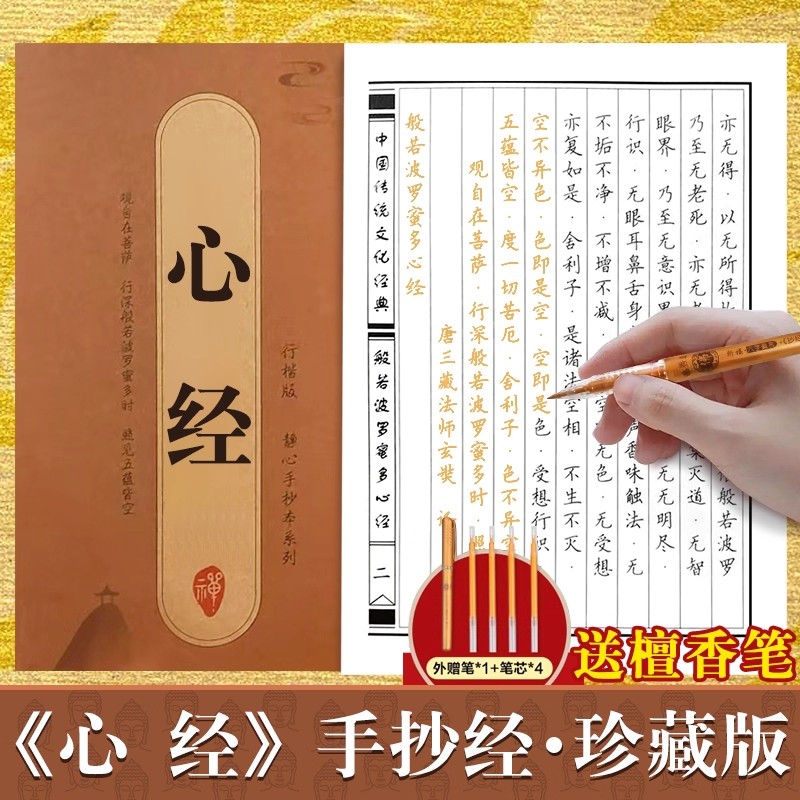 观自在菩萨 行深般若波罗蜜多时 照见五蕴皆空
心经
行楷版 静心手抄本系列
禅
中国传统文化经典
般若波罗蜜多心经
二
般若波罗蜜多心经
唐三藏法师玄奘
观自在菩萨·行深般若波罗蜜多时·照
五蕴皆空·度一切苦厄·舍利子·色不异空
空不异色·色即是空·空即是色·受想行识
亦复如是·舍利子·是诸法空相·不生不灭·
不垢不净·不增不减·空 无色·无受想
行识·无眼耳鼻舌身 声香味触法·无
眼界·乃至无意识界 无无明尽·
乃至无老死·亦无老 集灭道·无智
亦无得·以无所得 般若波罗
外赠笔*1+笔芯*4
送檀香笔
《心 经》手抄经·珍藏版